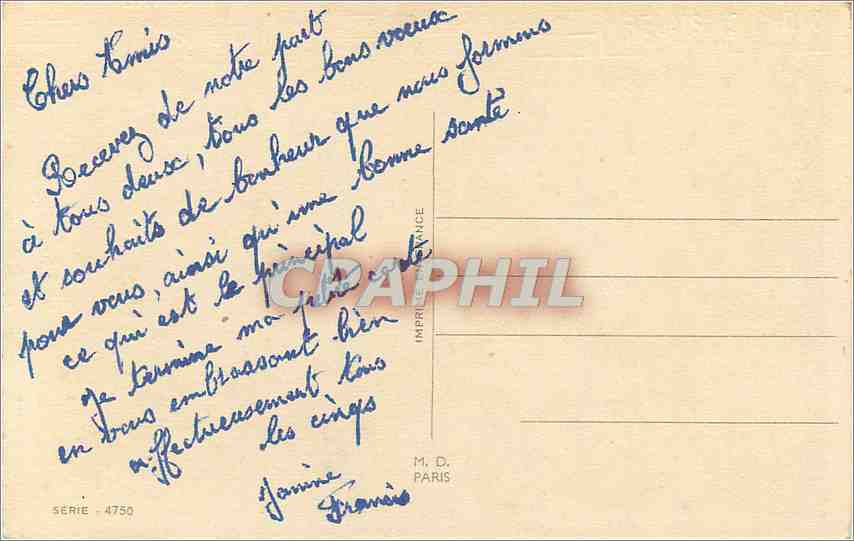 Chers Amis
Recevez de notre part
à tous deux, tous les bons voeux
et souhaits de bonheur que nous formons
pour vous, ainsi qu'une bonne santé
ce qui est le principal
Je termine ma petite carte
en vous embrassant bien
affectueusement tous
les cinqs
Janine
Francis
CPAPHIL
IMPRIMÉ EN FRANCE
M. D.
PARIS
SÉRIE - 4750